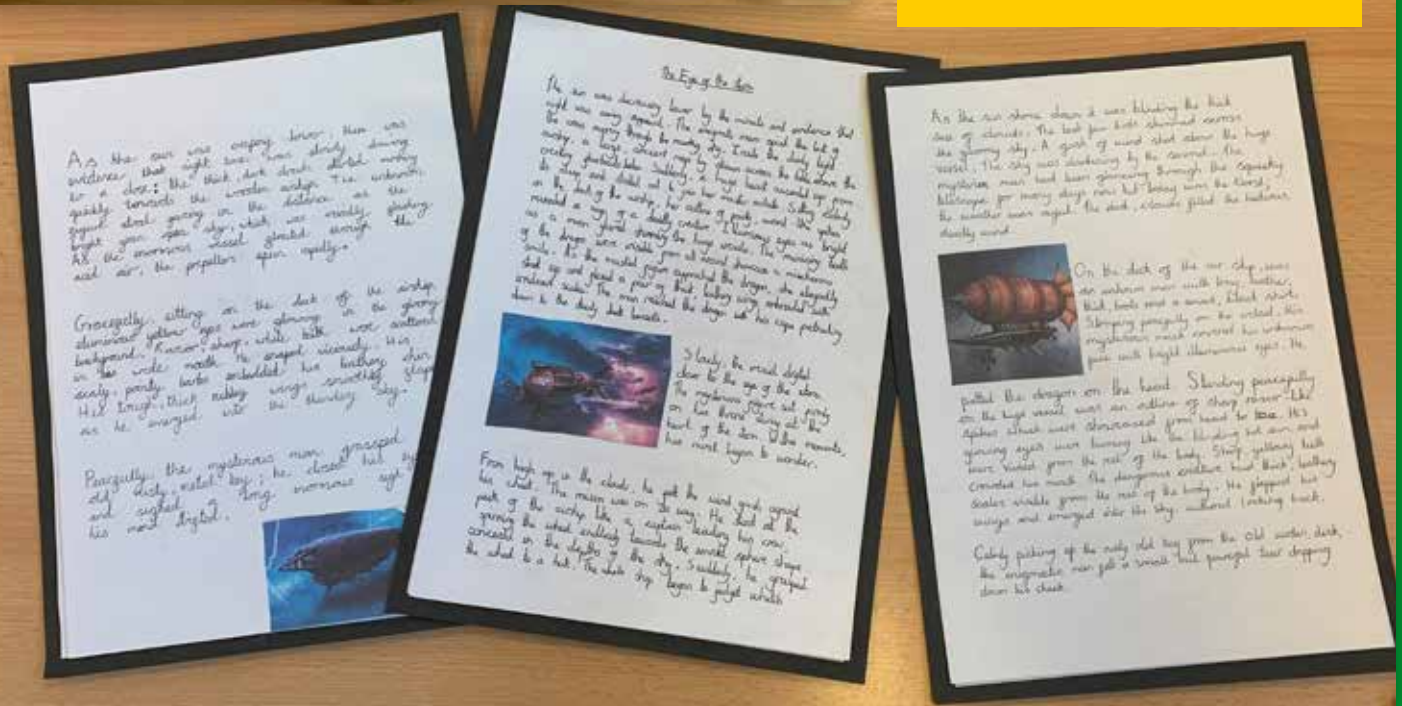 As the sun was creeping lower, there was
evidence that night time was slowly drawing
to a close; the thick, dark clouds started moving
quickly towards the wooden airship. The unknown
figure stood gazing in the distance as the
bright green eyes sky, which was madly flashing
As the enormous vessel glided through the
acid air, the propellors spun rapidly.
Gracefully, sitting on the deck of the airship
illuminous yellow eyes were glowing in the gloomy
background. Razor, sharp, white teeth were scattered
in his wide mouth. He snapped viciously. His
scaly, pointy barbs embedded his leathery skin.
His tough, thick rubbery wings smoothly flaps
as he emerged into the thundery sky.
Peacefully, the mysterious man grasped
old rusty, metal key; he closed his eyes
and sighed a long enormous sigh
his mind
The Eye of the storm
The sun was decreasing lower by the minute and evidence that
night was coming appeared. The
the was through the murky sky. Inside the dimly light
airship, a large,
creaky floorboards below. Suddenly, a huge beast
its sleep and
on the deck of the airship, her outline of
revealed a of a deadly creature. Illuminous eyes as bright
as a moon the huge vessel. The
of the dragon were visible from all around
smile. As the masked figure approached the dragon, she elegantly
stood up and a pair of thick wings, embroided with
scales. The man the dragon with his cape
down to the dark beneath.
Slowly, the vessel drifted
closer to the eye of the storm.
The mysterious figure sat
on his throne staring at the
heart of the storm. Within moments,
his mind began to wonder.
From high up in the clouds, he felt the wind gush against
his chest. The mission was on its way. He stood at the
peak of the airship like a captain leading his crew,
spinning the wheel endlessly towards the sphere shape
concealed in the depths of the sky. Suddenly, he grasped
the wheel to a halt. The whole ship began to
As the sun shone down it was blinding the thick
sea of clouds. The last few birds skimmed across
the gloomy sky. A gush of wind shot above the huge
vessel. The sky was darkening by the second. The
mysterious man had been glancing through the squeaky
telescope for many days now but today was the worst,
the weather was rapid. The dark, clouds filled the
deadly wind.
On the deck of the air ship, was
an unknown man with long, leather,
thick boots and a black shirt.
Sleeping peacefully on the vessel, this
mysterious mask covered his unknown
face with bright illuminous eyes. He
patted the dragon on the head. Standing peacefully
on the huge vessel was an outline of sharp razor like
spikes which were showcased from head to toe. His
glowing eyes were burning like the blinding hot sun and
were visible from the rest of the body. Sharp, yellowy teeth
crowded his mouth. The dangerous creature had thick, leathery
scales visible from the rest of the body. He flapped his
wings and emerged into the sky without looking back.
Calmly picking up the rusty old key from the old wooden, desk,
the enigmatic man felt a small but powerful tear dripping
down his cheek.